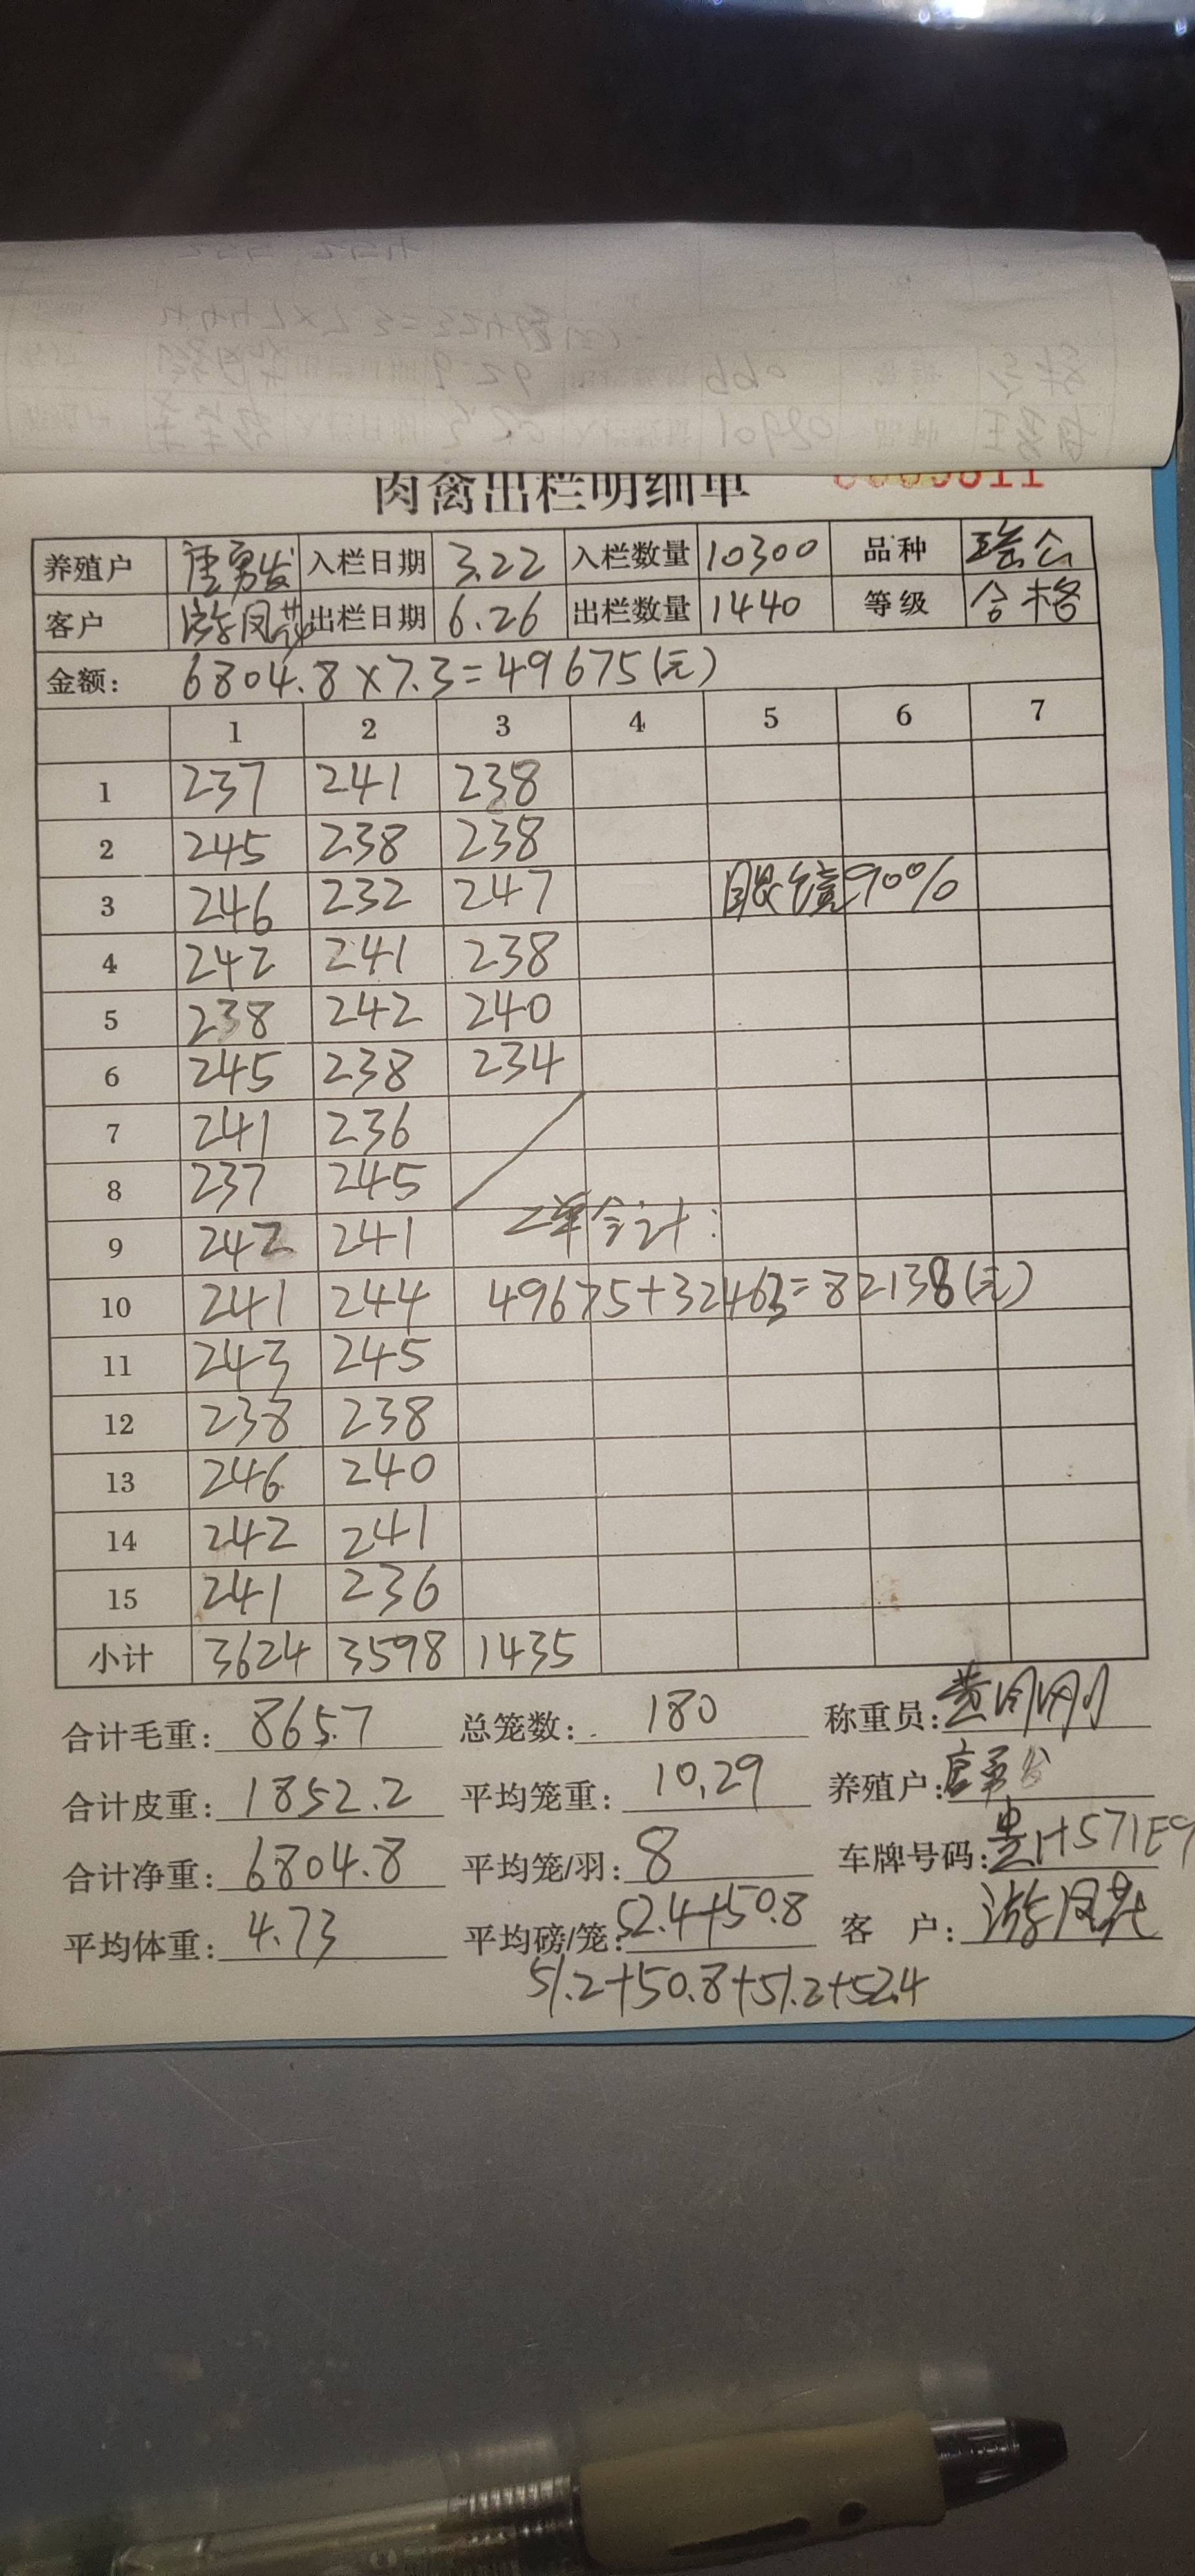 肉禽出栏明细单
养殖户 唐勇发 入栏日期 3.22 入栏数量 10300 品种 瑶公
客户 游凤花 出栏日期 6.26 出栏数量 1440 等级 合格
金额: 6804.8×7.3=49675(元)
1 2 3 4 5 6 7
1 237 241 238
2 245 238 238
3 246 232 247 90%
4 242 241 238
5 238 242 240
6 245 238 234
7 241 236
8 237 245
9 242 241 二单合计:
10 241 244 49675+32463=82138(元)
11 243 245
12 238 238
13 246 240
14 242 241
15 241 236
小计 3624 3598 1435
合计毛重: 865.7 总笼数: 180 称重员:
合计皮重: 1852.2 平均笼重: 10.29 养殖户: 唐勇发
合计净重: 6804.8 平均笼/羽: 8 车牌号码: 贵H571E9
平均体重: 4.73 平均磅/笼: 52.4+50.8 客户: 游凤花
51.2+50.8+51.2+52.4